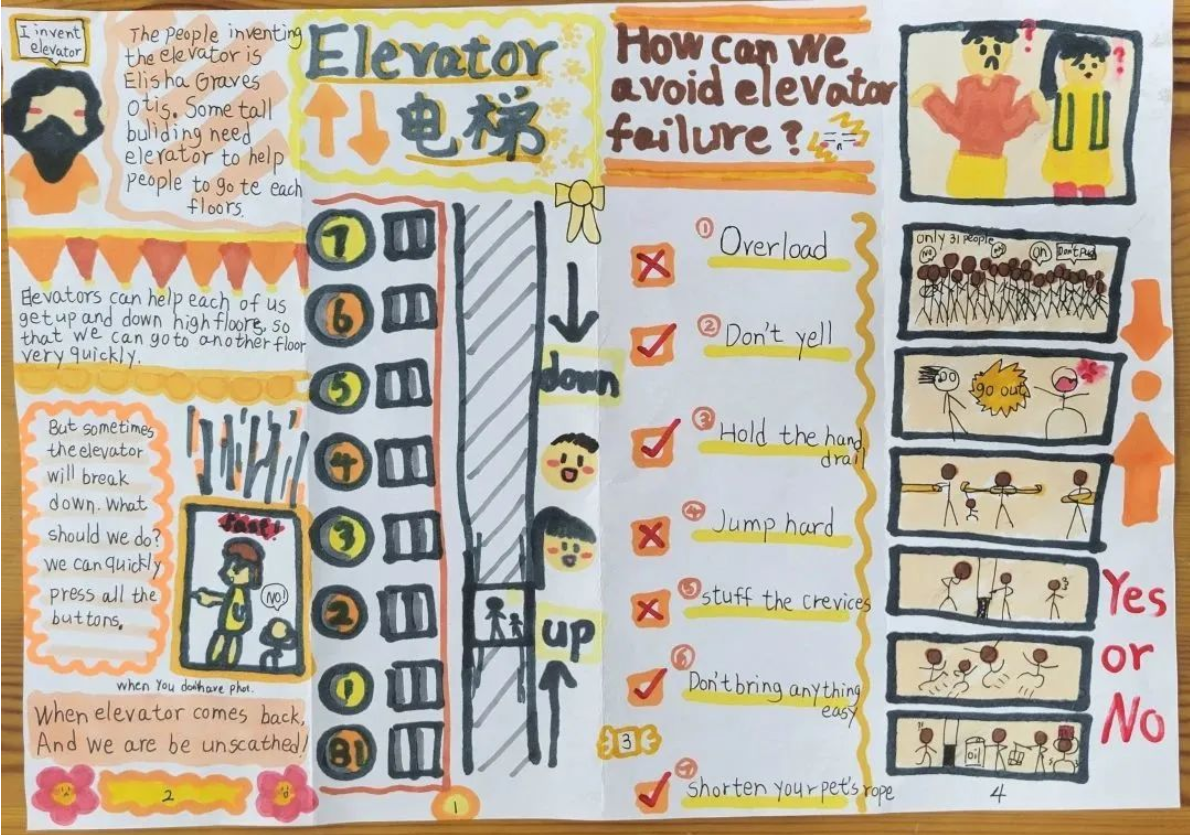 I invent
elevator
The people inventing
the elevator is
Elisha Graves
Otis. Some tall
buliding need
elerator to help
people to go te each
floors.
Elevators can help each of us
get up and down high floors, so
that we can go to another floor
very quickly.
But sometimes
the elevator
will break
down. What
should we do?
we can quickly
press all the
buttons.
NO!
when You don't have phot.
When elevator comes back,
And we are be unscathed!
2
Elevator
电梯
7
6
5
4
3
2
1
B1
down
up
1
How can we
avoid elevator
failure?
① Overload
② Don't yell
③ Hold the hand
drail
④ Jump hard
⑤ stuff the crevices
⑥
Don't bring anything
easy
3
⑦ shorten your pet's rope
? ?
only 31 people
NO
Oh
Don't Push
go out
oil
Yes
or
No
4